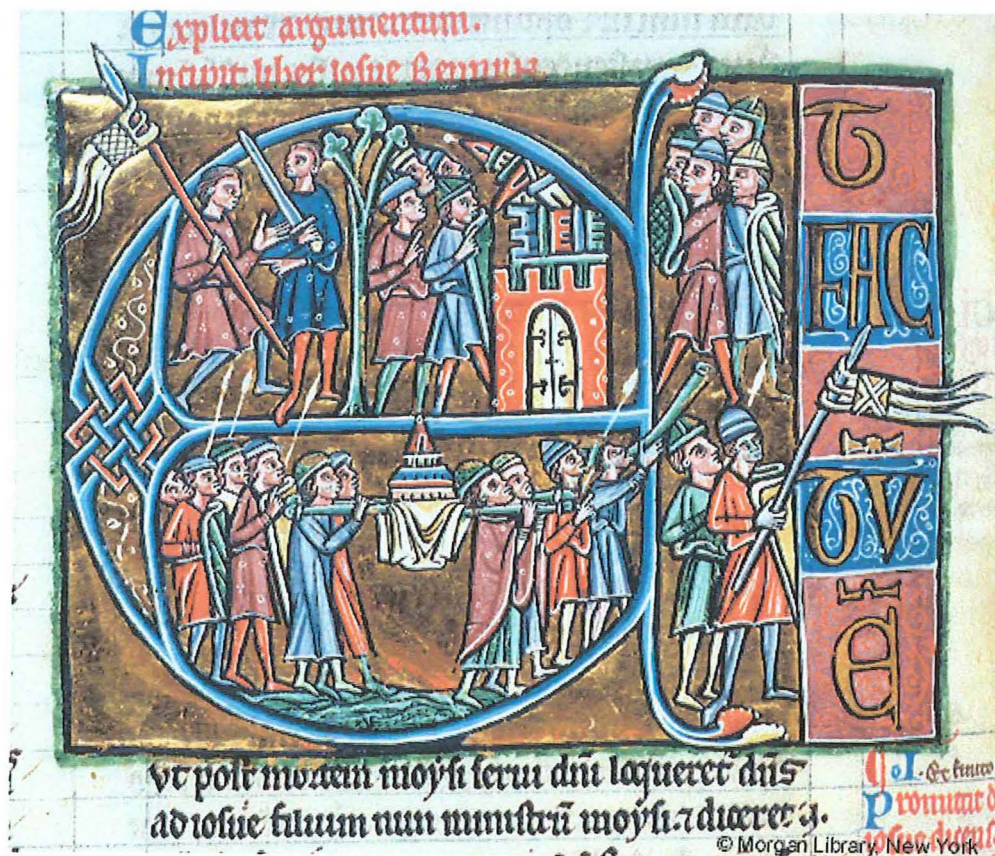 Explicit argumentum.
Incipit liber iosue Bennun
E
T
FAC
TV
E
ut post mortem moysi serui dn̄i loqueret᷑ dn̄s
ad iosue filium nun ministrū moysi. ⁊ diceret ei.
© Morgan Library, New York